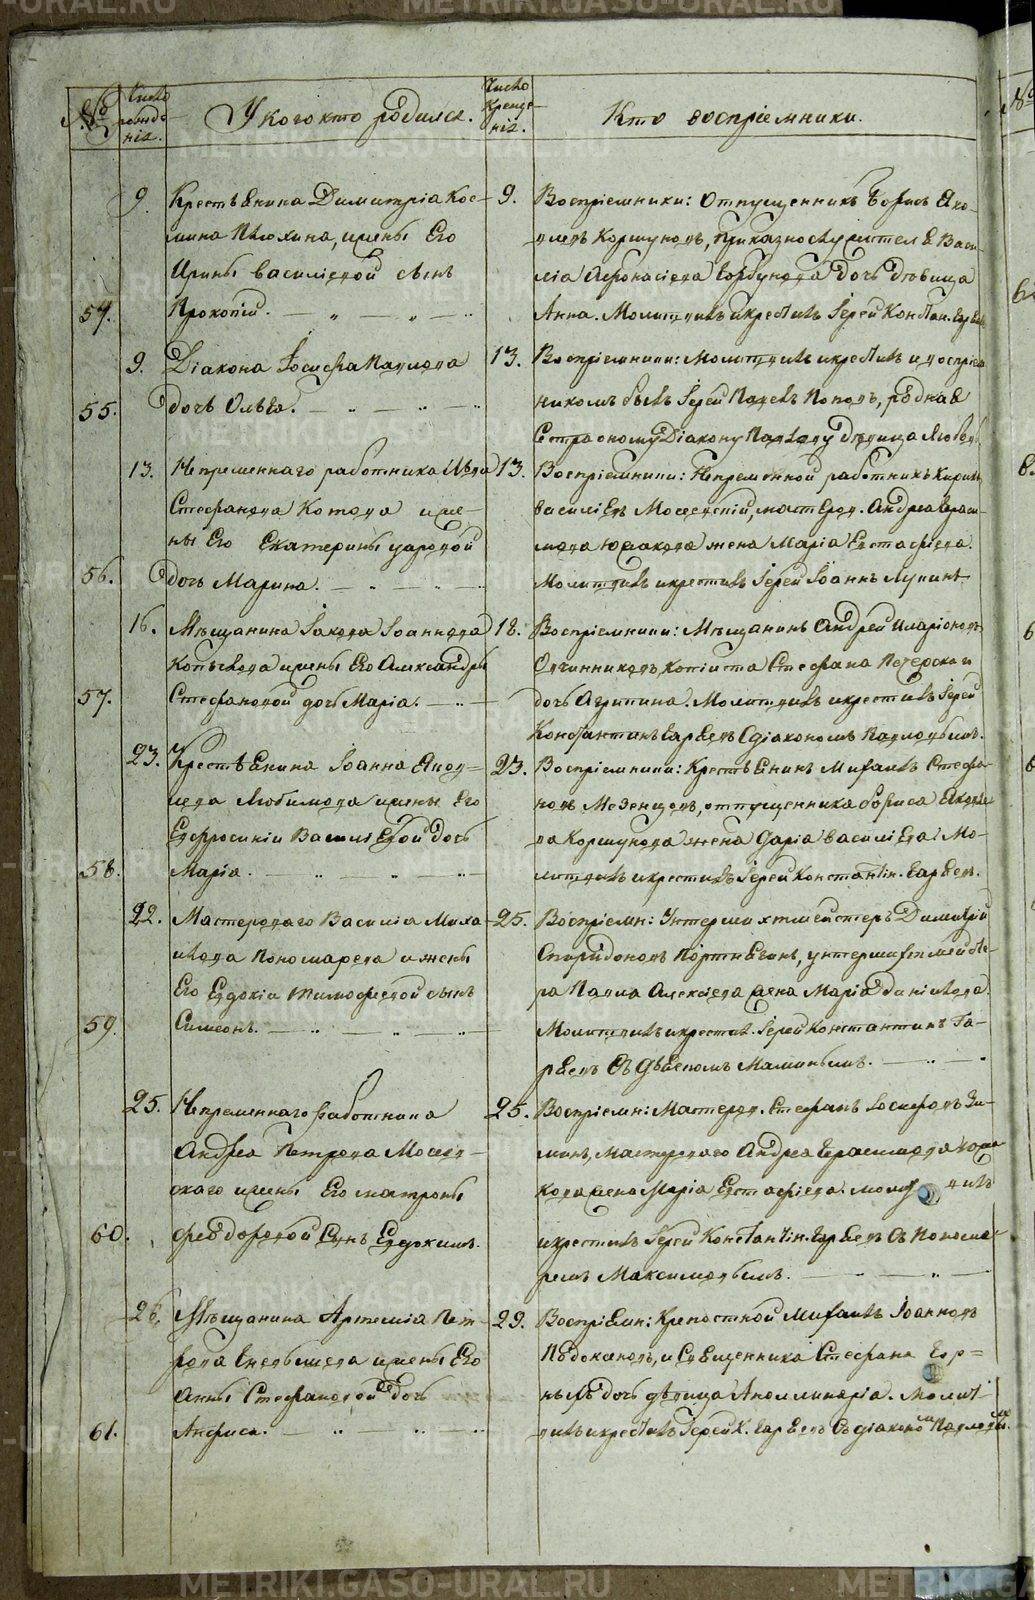 METRIKI.GASO-URAL.RU
№
Число рожде-
нія.
У кого кто родился.
Число Креще-
нія.
Кто воспріемники.
9. Крестьянина Димитріа Кос-
мина Плюхина, и жены Его
Ирины Василіевой сынъ
54. Прокопій.
9. Воспріемники: Отпущенникъ Борисъ Яко-
влевъ Коршуновъ, приказнослужителя Васи-
ліа Афонасіева Горбунова Дочь Дѣвица
Анна. Молитвилъ и крестилъ Іерей Констан.
9. Діакона Іосифа Павлова
55. дочь Ольга.
13. Воспріемники: Молитвилъ и крестилъ и воспріем
никомъ былъ Іерей Павелъ Поповъ, родная
Сестра оному Діакону Павлову дѣвица Любовь.
13. Непременнаго работника Льва
Стефанова Котова и же-
ны Его Екатерины
56. дочь Марина.
13. Воспріемники: Непременной работникъ Кирилъ
Василіевъ Мосевскій, мастеров. Андреа Гераси-
мова Юшакова жена Маріа Евстафіева.
Молитвилъ и крестилъ Іерей Іоаннъ Лупинъ
16. Мѣщанина Іакова Іоаннова
Копылова и жены Его Александры
57. Стефановой дочь Маріа.
18. Воспріемники: Мѣщанинъ Андрей Иларіоновъ
Овчинниковъ, копіиста Стефана Печерскаго
дочь Агрипина. Молитвилъ и крестилъ Іерей
Константинъ съ діакономъ Павловымъ.
23. Крестьянина Іоанна Яков-
лева Любимова и жены Его
Евфросиніи Василіевой дочь
58. Маріа.
23. Воспріемники: Крестьянинъ Михаилъ Стефа-
новъ Мезенцовъ, отпущенника Бориса Яковле
ва Коршунова жена Даріа Василіева. Мо-
литвилъ и крестилъ Іерей Константін.
22. Мастероваго Василіа Миха-
илова Пономарева и жены
Его Евдокіи Тимофеевой сынъ
59. Симеонъ.
25. Воспріемн: Унтершихтмейстеръ Димитрій
Спиридоновъ Портнягинъ, унтершихтмейсте-
ра Павла Алексіева жена Маріа Даніилова.
Молитвилъ и крестил. Іерей Константинъ
съ Дьячкомъ Маминымъ.
25. Непременнаго работника
Андреа Петрова Мосев-
скаго и жены Его Матроны
60. Феодоровой Сынъ Евдокимъ.
25. Воспріемн: Мастеров. Стефанъ Іосифовъ Зи-
минъ, мастероваго Андреа Герасимова Юша
кова жена Маріа Евстафіева. Молитвилъ
и крестилъ Іерей Константін. съ Понома-
ремъ Максимовымъ.
26. Мѣщанина Артеміа Пет-
рова и жены Его
Анны Стефановой дочь
61. Анфиса.
29. Воспріемн: Крепостной Михаилъ Іоанновъ
и Священника Стефана
дочь дѣвица Аполлинаріа. Молит-
вилъ и крестилъ Іерей К. съ діаконом Павловым.
METRIKI.GASO-URAL.RU
METRIKI.GASO-URAL.RU